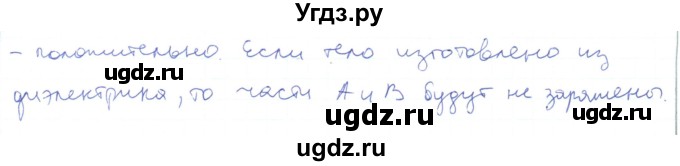 Угдз.ру
- положительно. Если тело изготовлено из
ugdz.ru ugdz.ru
диэлектрика, то части А и В будут не заряжены.
ugdz.ru ugdz.ru
ugdz.ru